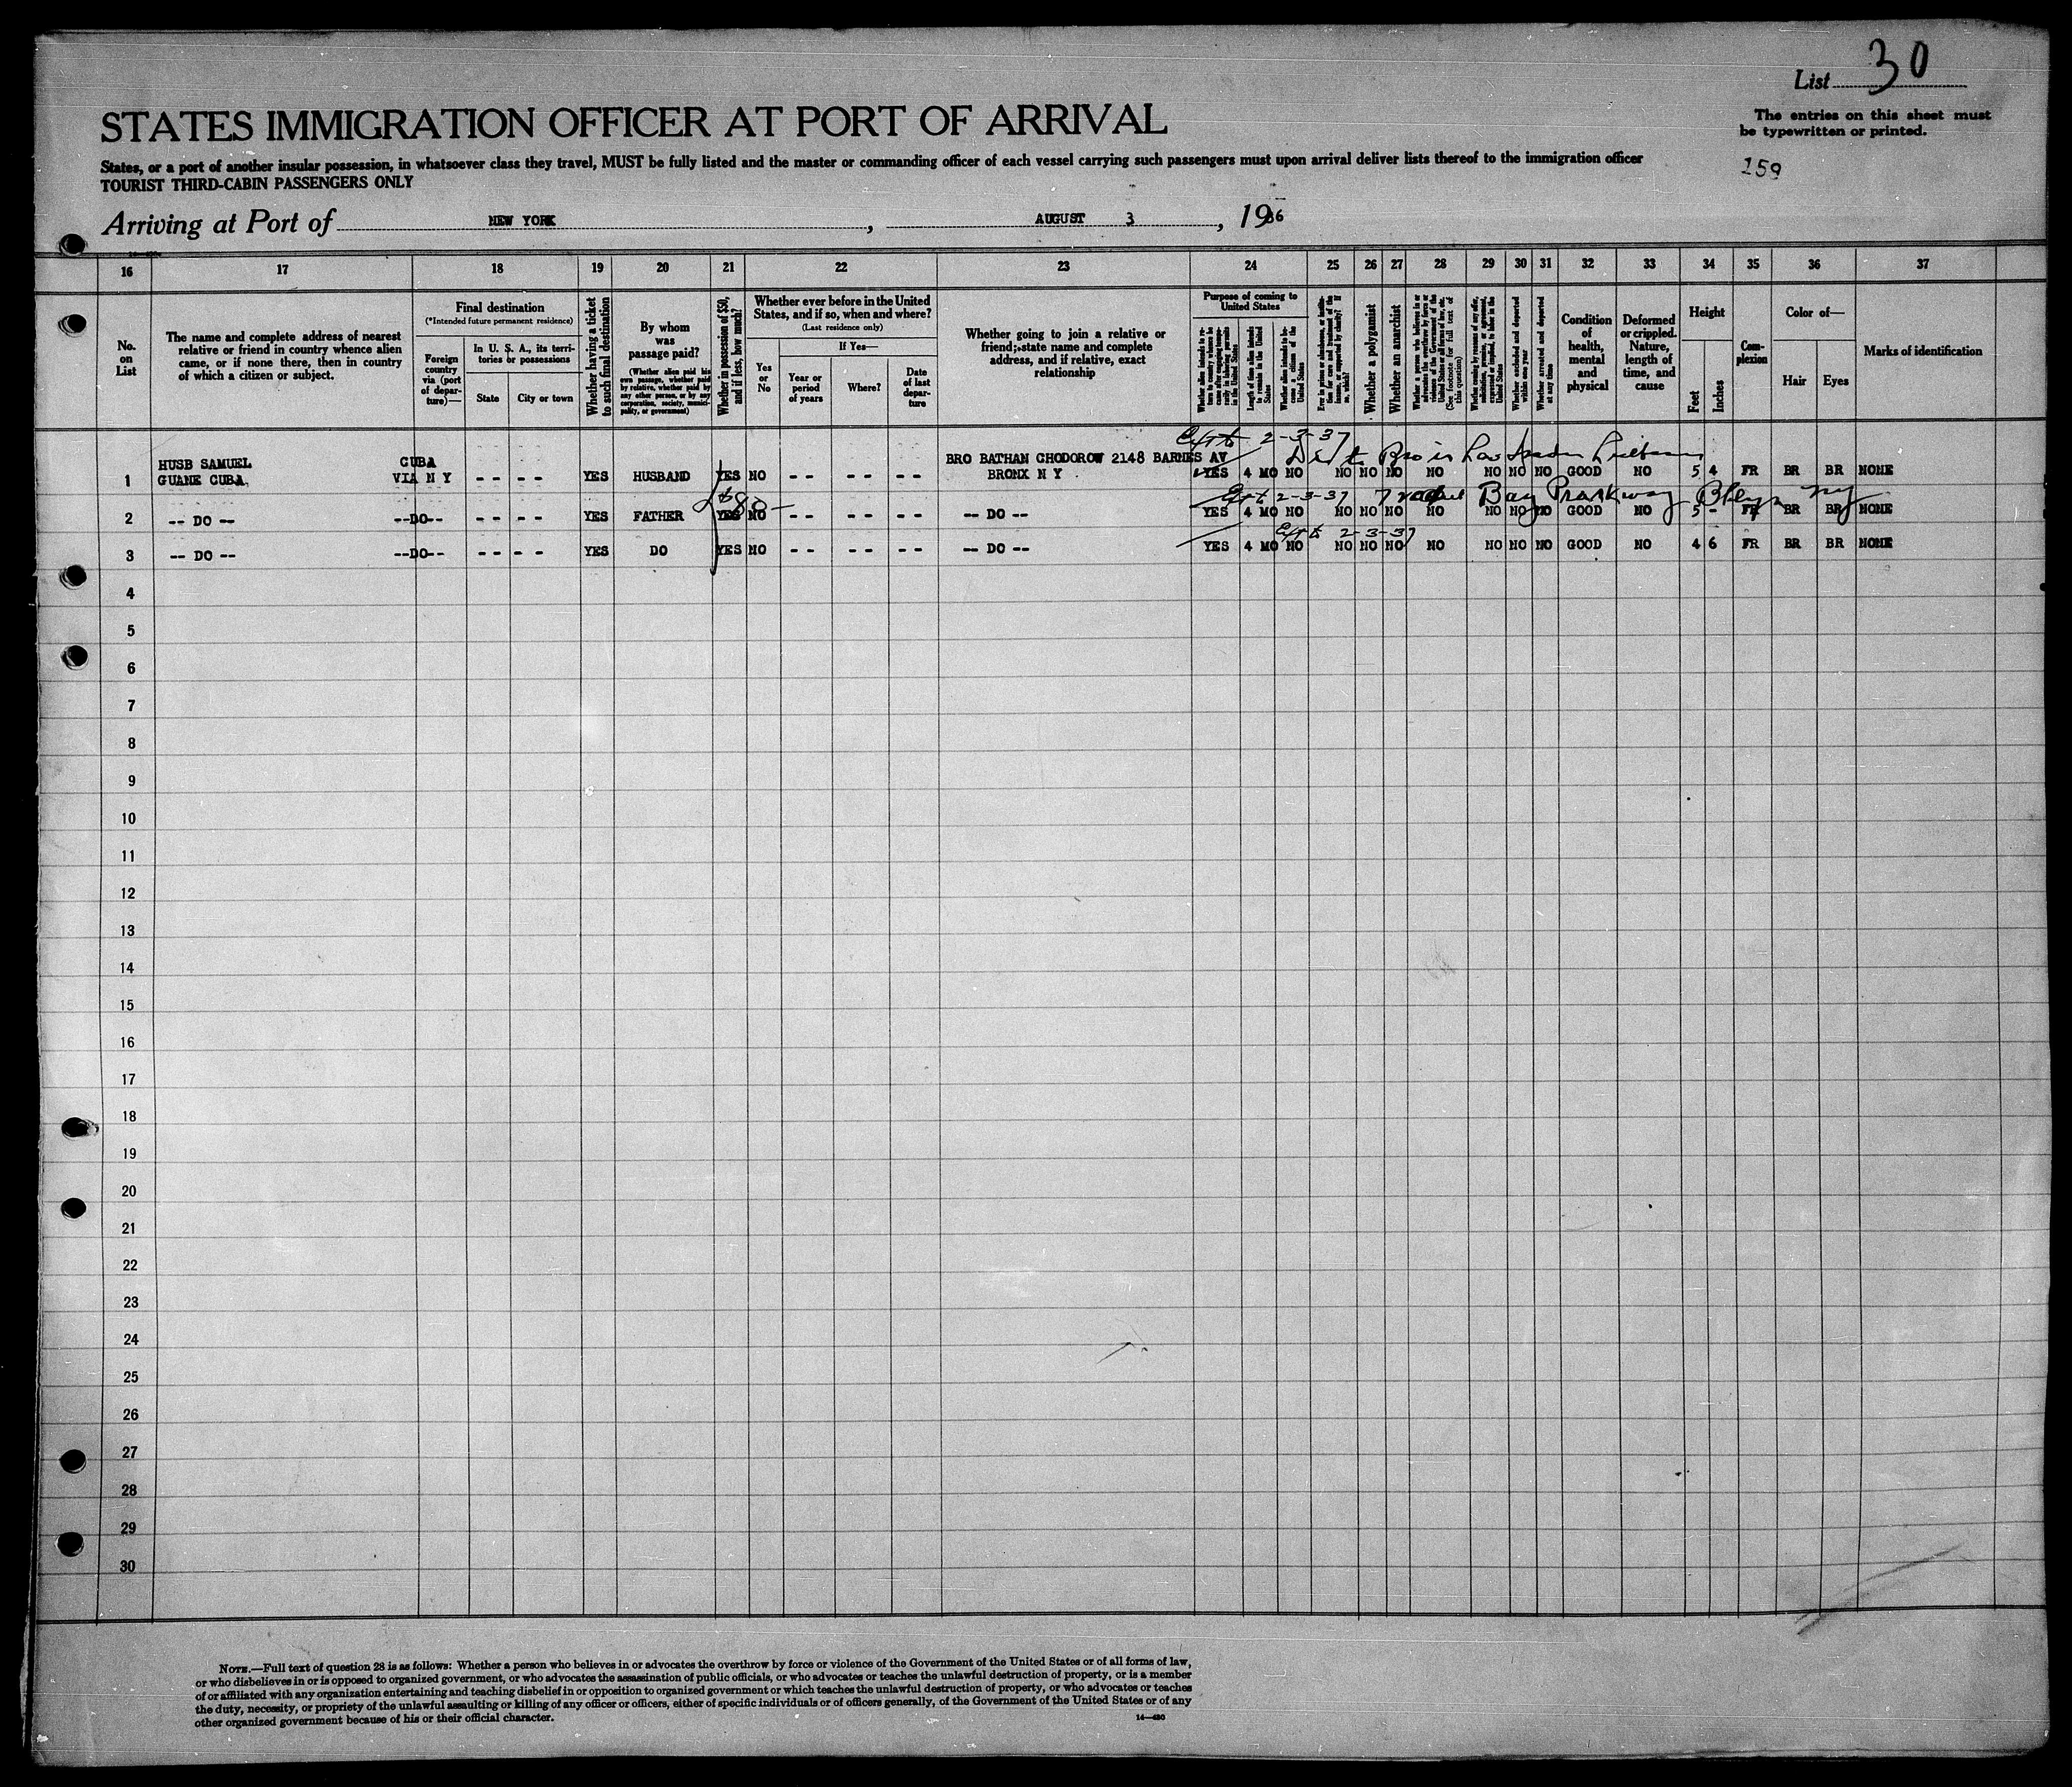 List 30
STATES IMMIGRATION OFFICER AT PORT OF ARRIVAL
The entries on this sheet must
be typewritten or printed.
States, or a port of another insular possession, in whatsoever class they travel, MUST be fully listed and the master or commanding officer of each vessel carrying such passengers must upon arrival deliver lists thereof to the immigration officer
TOURIST THIRD-CABIN PASSENGERS ONLY
159
Arriving at Port of NEW YORK, AUGUST 3, 1936
16 17 18 19 20 21 22 23 24 25 26 27 28 29 30 31 32 33 34 35 36 37
No.
on
List
The name and complete address of nearest
relative or friend in country whence alien
came, or if none there, then in country
of which a citizen or subject.
Final destination
(*Intended future permanent residence)
Foreign
country
via (port
of depar-
ture)—
In U. S. A., its terri-
tories or possessions
State
City or town
Whether having a ticket
to such final destination
By whom
was
passage paid?
(Whether alien paid his
own passage, whether paid
by relative, whether paid by
any other person, or by any
corporation, society, munici-
pality, or government)
Whether in possession of $50,
and if less, how much?
Whether ever before in the United
States, and if so, when and where?
(Last residence only)
Yes
or
No
If Yes—
Year or
period
of years
Where?
Date
of last
depar-
ture
Whether going to join a relative or
friend; state name and complete
address, and if relative, exact
relationship
Purpose of coming to
United States
Length of time alien intends
to remain in the United
States
Whether alien intends to be-
come a citizen of the
United States
Whether a polygamist
Whether an anarchist
Whether arrested and deported
at any time
Condition
of
health,
mental
and
physical
Deformed
or crippled.
Nature,
length of
time, and
cause
Height
Feet
Inches
Com-
plexion
Color of—
Hair
Eyes
Marks of identification
2-3-37
1 HUSB SAMUEL CUBA BRO BATHAN CHODOROW 2148 BARNES AV
GUANE CUBA. VIA N Y -- -- YES HUSBAND YES NO -- -- -- BRONX N Y YES 4 MO NO NO NO NO NO NO NO NO GOOD NO 5 4 FR BR BR NONE
2-3-37 Bay Parkway
2 -- DO -- --DO-- -- -- YES FATHER YES NO -- -- -- -- DO -- YES 4 MO NO NO NO NO NO NO NO NO GOOD NO 5 - FR BR BR NONE
2-3-37
3 -- DO -- --DO-- -- -- YES DO YES NO -- -- -- -- DO -- YES 4 MO NO NO NO NO NO NO NO NO GOOD NO 4 6 FR BR BR NONE
4
5
6
7
8
9
10
11
12
13
14
15
16
17
18
19
20
21
22
23
24
25
26
27
28
29
30
NOTE.—Full text of question 28 is as follows: Whether a person who believes in or advocates the overthrow by force or violence of the Government of the United States or of all forms of law,
or who disbelieves in or is opposed to organized government, or who advocates the assassination of public officials, or who advocates or teaches the unlawful destruction of property, or is a member
of or affiliated with any organization entertaining and teaching disbelief in or opposition to organized government or which teaches the unlawful destruction of property, or who advocates or teaches
the duty, necessity, or propriety of the unlawful assaulting or killing of any officer or officers, either of specific individuals or of officers generally, of the Government of the United States or of any
other organized government because of his or their official character.
14—480